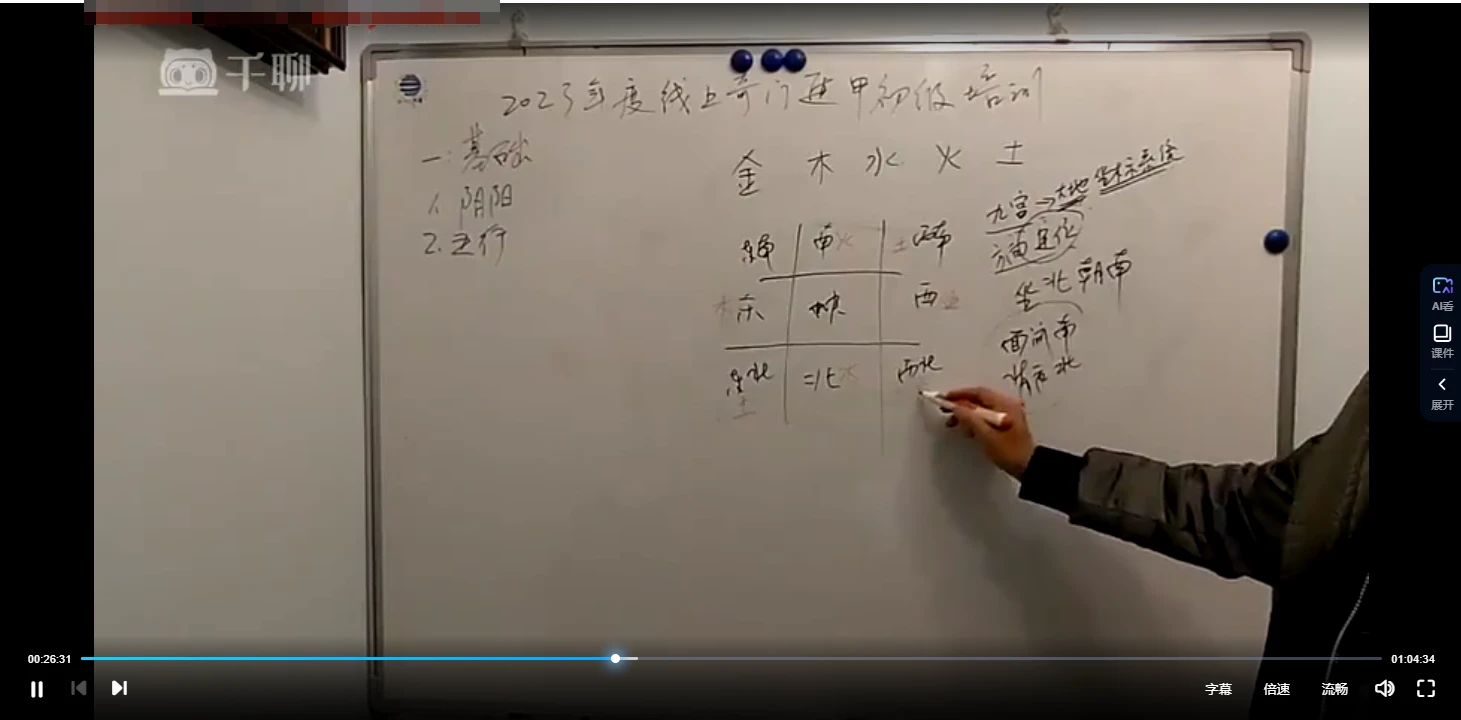 千聊
2023年度线上奇门遁甲初级培训
一:基础
1.阴阳
2.五行
金 木 水 火 土
九宫→大地 坐标
方面定位
坐北朝南
面向南
背后北
东南 南火 土西南
木东 中 西金
东北 北水 西北
土
AI看
课件
展开
00:26:31
01:04:34
字幕 倍速 流畅